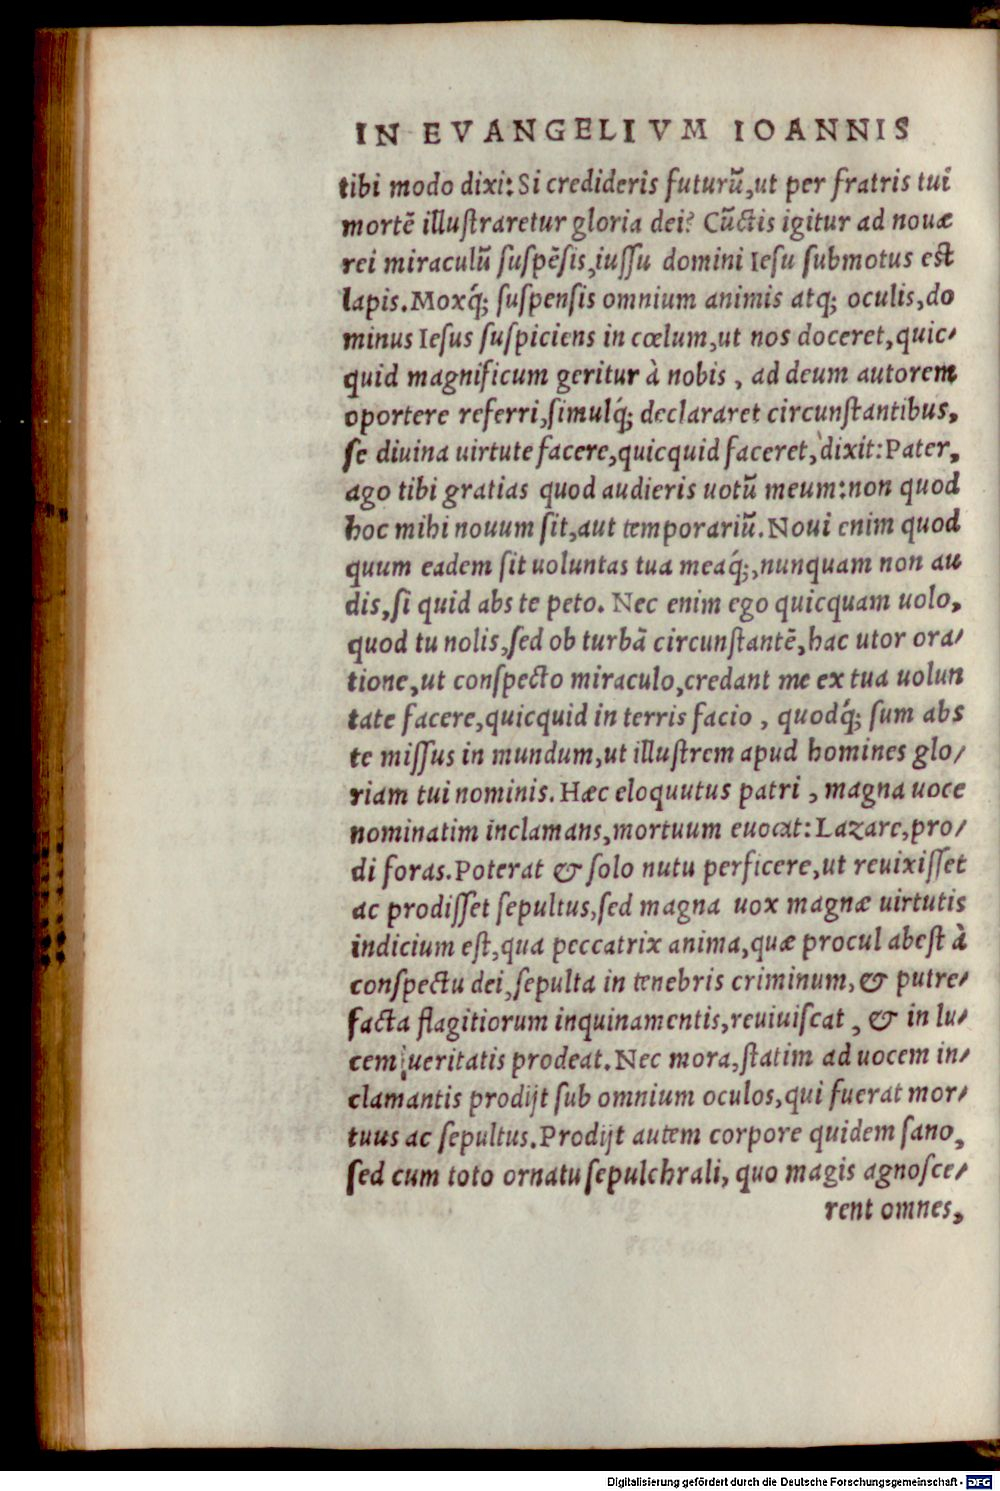 IN EVANGELIVM IOANNIS
tibi modo dixi: Si credideris futurũ, ut per fratris tui
mortẽ illuſtraretur gloria dei? Cũctis igitur ad nouæ
rei miraculũ ſuſpẽſis, iuſſu domini Ieſu ſubmotus eſt
lapis. Moxq́; ſuſpenſis omnium animis atq; oculis, do
minus Ieſus ſuſpiciens in cœlum, ut nos doceret, quic-
quid magnificum geritur à nobis, ad deum autorem
oportere referri, ſimulq́; declararet circunſtantibus,
ſe diuina uirtute facere, quicquid faceret, dixit: Pater,
ago tibi gratias quod audieris uotũ meum: non quod
hoc mihi nouum ſit, aut temporariũ. Noui enim quod
quum eadem ſit uoluntas tua meaq́;, nunquam non au
dis, ſi quid abs te peto. Nec enim ego quicquam uolo,
quod tu nolis, ſed ob turbã circunſtantẽ, hac utor ora-
tione, ut conſpecto miraculo, credant me ex tua uolun
tate facere, quicquid in terris facio, quodq́; ſum abs
te miſſus in mundum, ut illuſtrem apud homines glo-
riam tui nominis. Hæc eloquutus patri, magna uoce
nominatim inclamans, mortuum euocat: Lazare, pro-
di foras. Poterat & ſolo nutu perficere, ut reuixiſſet
ac prodiſſet ſepultus, ſed magna uox magnæ uirtutis
indicium eſt, qua peccatrix anima, quæ procul abeſt à
conſpectu dei, ſepulta in tenebris criminum, & putre-
facta flagitiorum inquinamentis, reuiuiſcat, & in lu-
cem ueritatis prodeat. Nec mora, ſtatim ad uocem in-
clamantis prodijt ſub omnium oculos, qui fuerat mor-
tuus ac ſepultus. Prodijt autem corpore quidem ſano,
ſed cum toto ornatu ſepulchrali, quo magis agnoſce-
rent omnes,
Digitalisierung gefördert durch die Deutsche Forschungsgemeinschaft - DFG